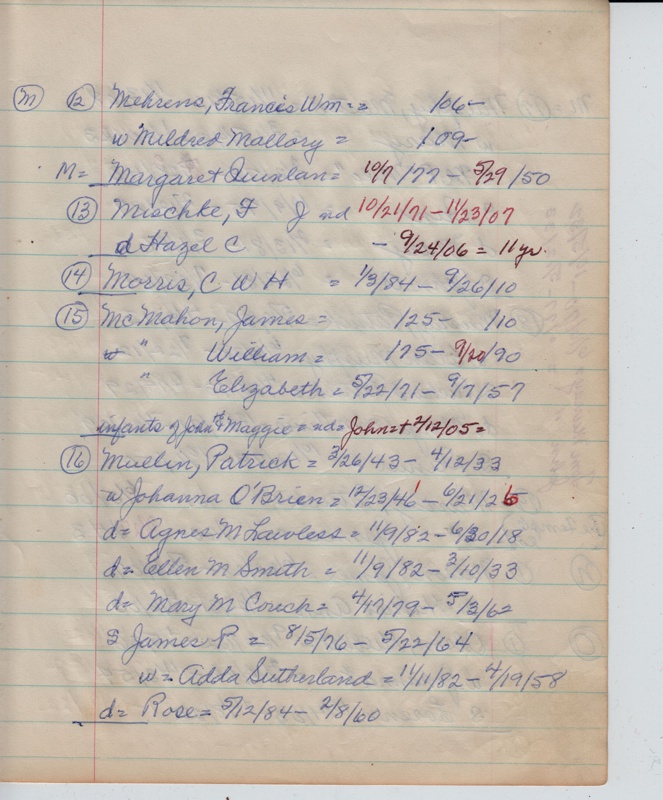 (M) (12) Mehrens, Francis Wm = = /06-
w Mildred Mallory = /09-
M= Margaret Quinlan= 10/7/77 - 5/29/50
(13) Mischke, F J nd 10/21/71-11/23/07
d Hazel C - 9/24/06 = 11yr.
(14) Morris, C W H = 1/3/84 - 9/26/10
(15) McMahon, James = /25- /10
" William = /75- 9/20/90
" Elizabeth = 5/22/71 - 9/7/57
infants of John & Maggie = nd= John=+ 2/12/05=
(16) Muellin, Patrick = 3/26/43 - 4/12/33
w Johanna O'Brien = 12/23/46 - 6/21/25
d= Agnes M Lawless = 11/9/82 - 6/30/18
d= Ellen M Smith = 11/9/82 - 3/10/33
d= Mary M Couch = 4/17/79 - 5/3/62
s James P = 8/5/76 - 5/22/64
w= Adda Sutherland = 11/11/82 - 4/19/58
d= Rose = 5/12/84 - 2/8/60